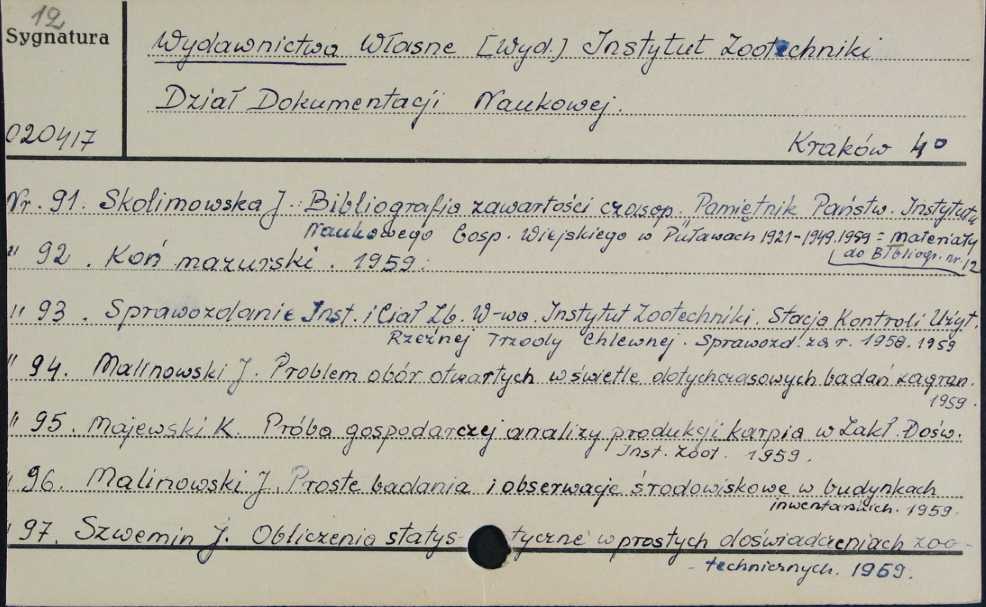 12
Sygnatura
Wydawnictwa Własne [Wyd.] Instytut Zootechniki
Dział Dokumentacji Naukowej.
020417
Kraków 4°
Nr. 91. Skolimowska J. Bibliografia zawartości czasop. Pamiętnik Państw. Instytutu
Naukowego Gosp. Wiejskiego w Puławach 1921-1949. 1959 = Materiały
do Bibliogr. nr. 12
" 92. Koń mazurski. 1959.
" 93. Sprawozdanie Inst. i Ciał Zb. W-wa. Instytut Zootechniki. Stacja Kontroli Użyt.
Rzeźnej Trzody Chlewnej. Sprawozd. za r. 1958. 1959
" 94. Malinowski J. Problem obór otwartych w świetle dotychczasowych badań zagran.
1959.
" 95. Majewski K. Próba gospodarczej analizy produkcji karpia w Zakł. Dośw.
Inst. Zoot. 1959.
" 96. Malinowski J. Proste badania i obserwacje środowiskowe w budynkach
inwentarskich. 1959.
" 97. Szwemin J. Obliczenia statys- tyczne w prostych doświadczeniach zoo-
- technicznych. 1959.